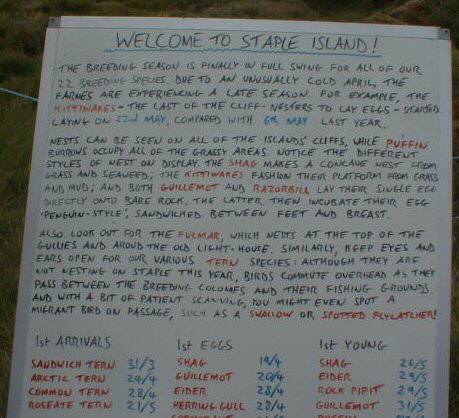 WELCOME TO STAPLE ISLAND!
THE BREEDING SEASON IS FINALLY IN FULL SWING FOR ALL OF OUR
22 BREEDING SPECIES. DUE TO AN UNUSUALLY COLD APRIL, THE
FARNES ARE EXPERIENCING A LATE SEASON. FOR EXAMPLE, THE
KITTIWAKES - THE LAST OF THE CLIFF-NESTERS TO LAY EGGS - STARTED
LAYING ON 22nd MAY, COMPARED WITH 6th MAY LAST YEAR.
NESTS CAN BE SEEN ON ALL OF THE ISLANDS' CLIFFS, WHILE PUFFIN
BURROWS OCCUPY ALL OF THE GRASSY AREAS. NOTICE THE DIFFERENT
STYLES OF NEST ON DISPLAY. THE SHAG MAKES A CONCAVE NEST FROM
GRASS AND SEAWEED; THE KITTIWAKES FASHION THEIR PLATFORM FROM GRASS
AND MUD; AND BOTH GUILLEMOT AND RAZORBILL LAY THEIR SINGLE EGG
DIRECTLY ONTO BARE ROCK. THE LATTER THEN INCUBATE THEIR EGG
'PENGUIN-STYLE', SANDWICHED BETWEEN FEET AND BREAST.
ALSO LOOK OUT FOR THE FULMAR, WHICH NESTS AT THE TOP OF THE
GULLIES AND AROUD THE OLD LIGHT-HOUSE. SIMILARLY, KEEP EYES AND
EARS OPEN FOR OUR VARIOUS TERN SPECIES: ALTHOUGH THEY ARE
NOT NESTING ON STAPLE THIS YEAR, BIRDS COMMUTE OVERHEAD AS THEY
PASS BETWEEN THE BREEDING COLONIES AND THEIR FISHING GROUNDS.
AND WITH A BIT OF PATIENT SCANNING, YOU MIGHT EVEN SPOT A
MIGRANT BIRD ON PASSAGE, SUCH AS A SWALLOW OR SPOTTED FLYCATCHER!
1st ARRIVALS 1st EGGS 1st YOUNG
SANDWICH TERN 31/3 SHAG 19/4 SHAG 26/5
ARCTIC TERN 24/4 GUILLEMOT 20/4 EIDER 29/5
COMMON TERN 28/4 EIDER 28/4 ROCK PIPIT 29/5
ROSEATE TERN 21/5 HERRING GULL 28/4 GUILLEMOT 31/5